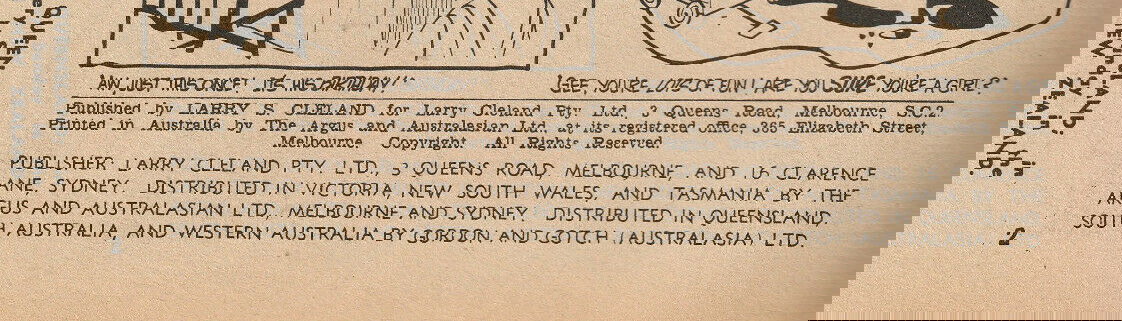 AW, JUST THIS ONCE! IT'S HIS BIRTHDAY!
GEE, YOU'RE LOTS OF FUN! ARE YOU SURE YOU'RE A GIRL?
Published by LARRY S. CLELAND for Larry Cleland Pty. Ltd. 3 Queens Road, Melbourne, S.C.2
Printed in Australia by The Argus and Australasian Ltd. at its registered office 365 Elizabeth Street
Melbourne Copyright All Rights Reserved
PUBLISHER: LARRY CLELAND PTY. LTD., 3 QUEENS ROAD MELBOURNE AND 16 CLARENCE
ANE, SYDNEY. DISTRIBUTED IN VICTORIA, NEW SOUTH WALES, AND TASMANIA BY THE
GUS AND AUSTRALASIAN LTD., MELBOURNE AND SYDNEY. DISTRIBUTED IN QUEENSLAND,
SOUTH AUSTRALIA, AND WESTERN AUSTRALIA BY GORDON AND GOTCH (AUSTRALASIA) LTD.